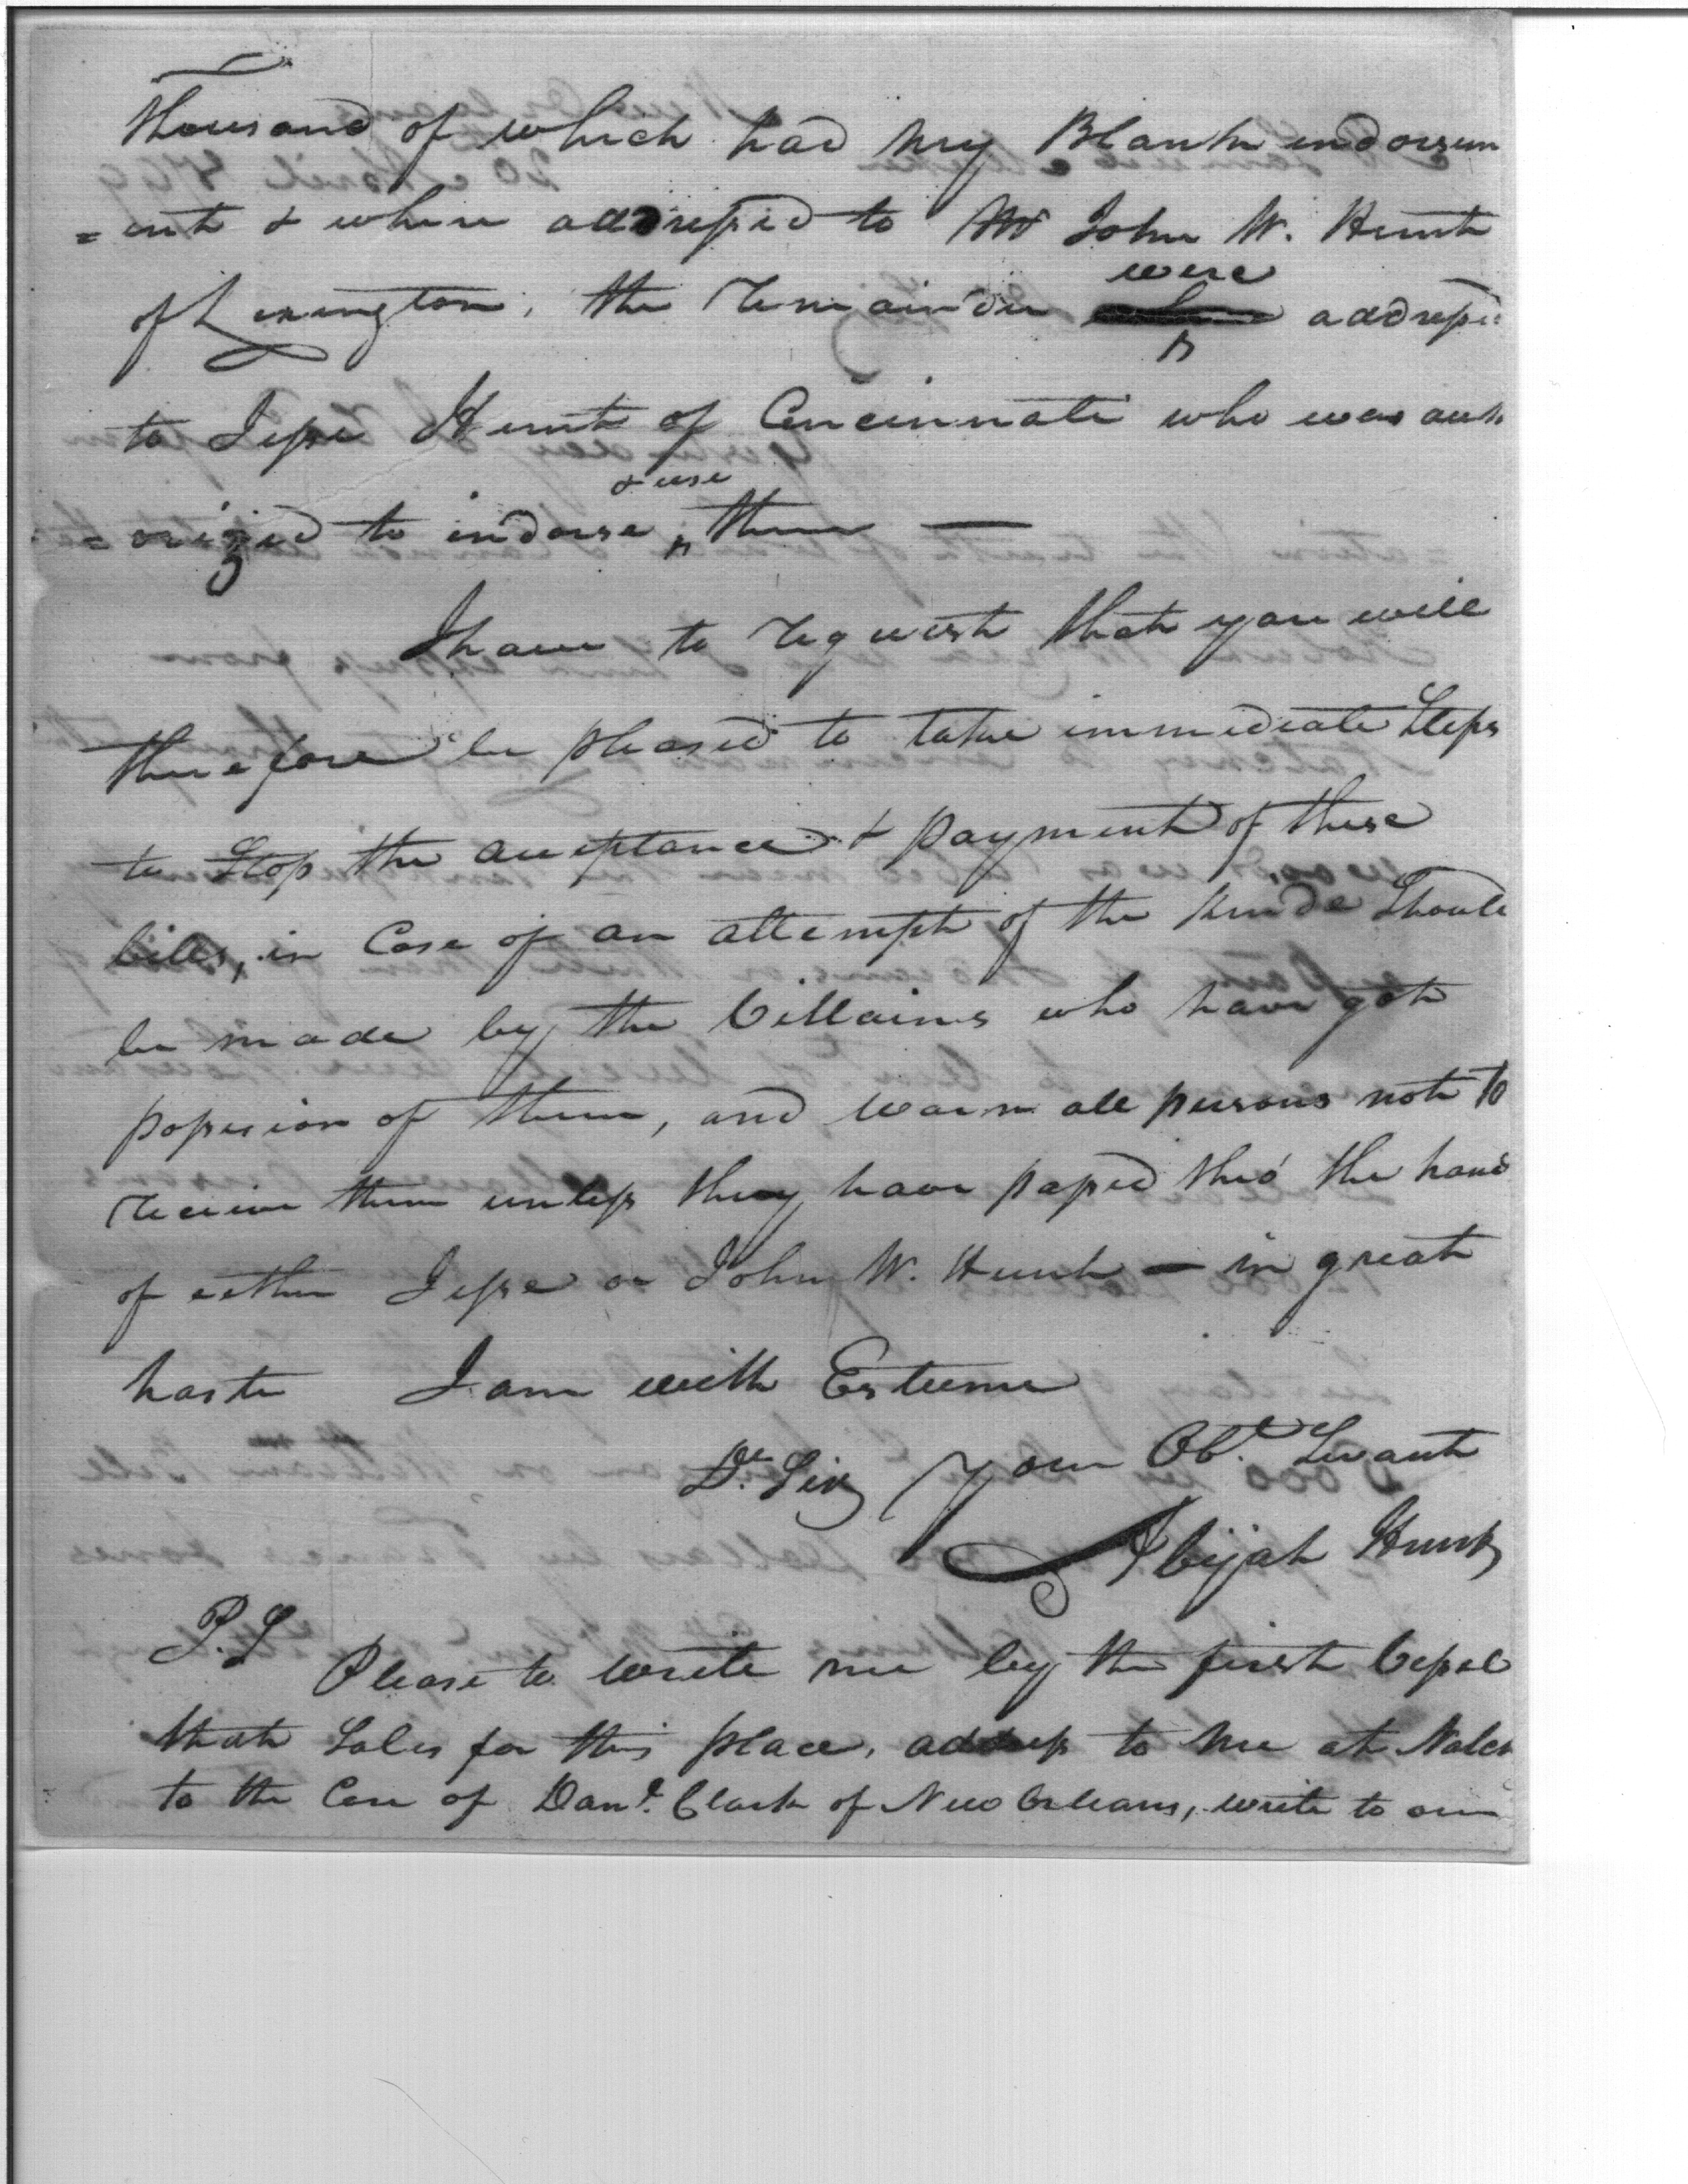 thousand of which had my Blank endorsem
=ent & where addressed to Mr John W. Hunt
of Lexington, the remainder were addresse
to Jesse Hunt of Cincinnati who was auth
=orized to indorse & use them —
I have to request that you will
therefore be pleased to take immediate Steps
to Stop the acceptance & payment of these
bills, in Case of an attempt of the kinde Should
be made by the Villains who have got
possesion of them, and warn all persons not to
receive them unless they have passed thro' the hand
of either Jesse or John W. Hunt — in great
haste I am with Esteem
Dr. Sir Your Obt. Servant
Abijah Hunt
P.S
Please to write me by the first Vessel
that Sales for this place, address to me at Natch
to the Care of Danl. Clark of New Orleans, write to our